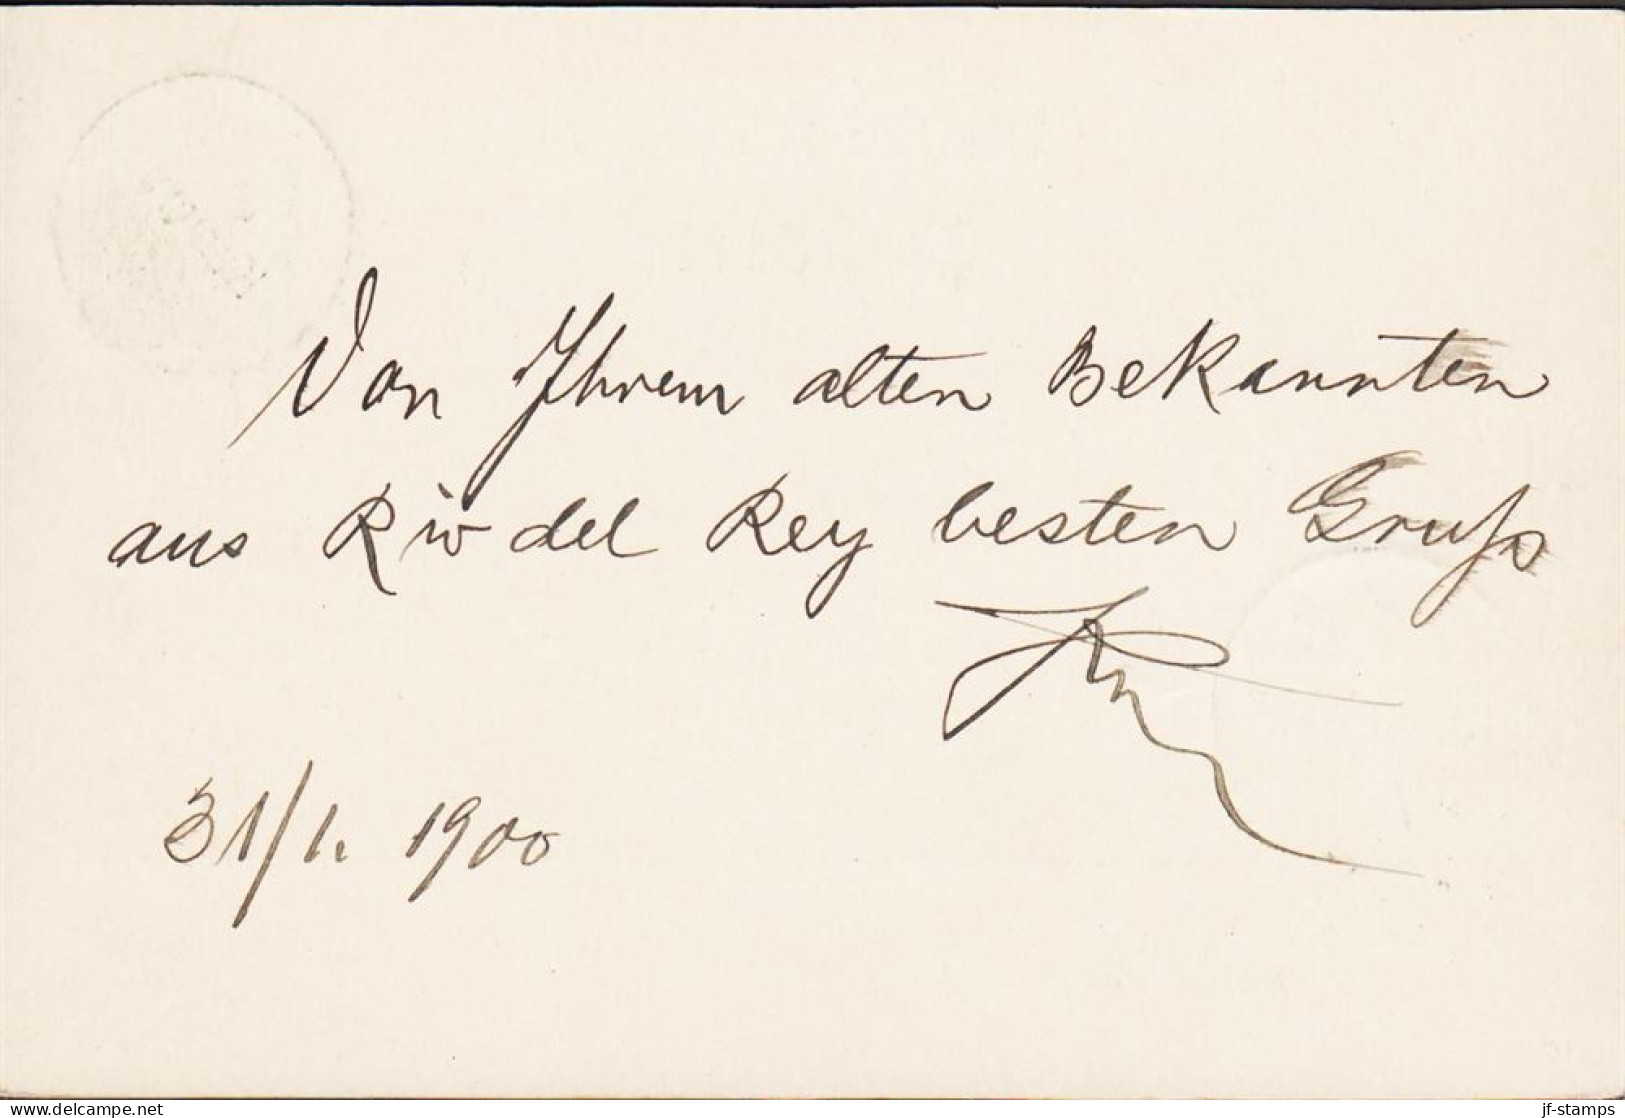 Von Ihrem alten Bekannten
aus Rio del Rey besten Gruß
31/1. 1900
www.delcampe.net
jf-stamps